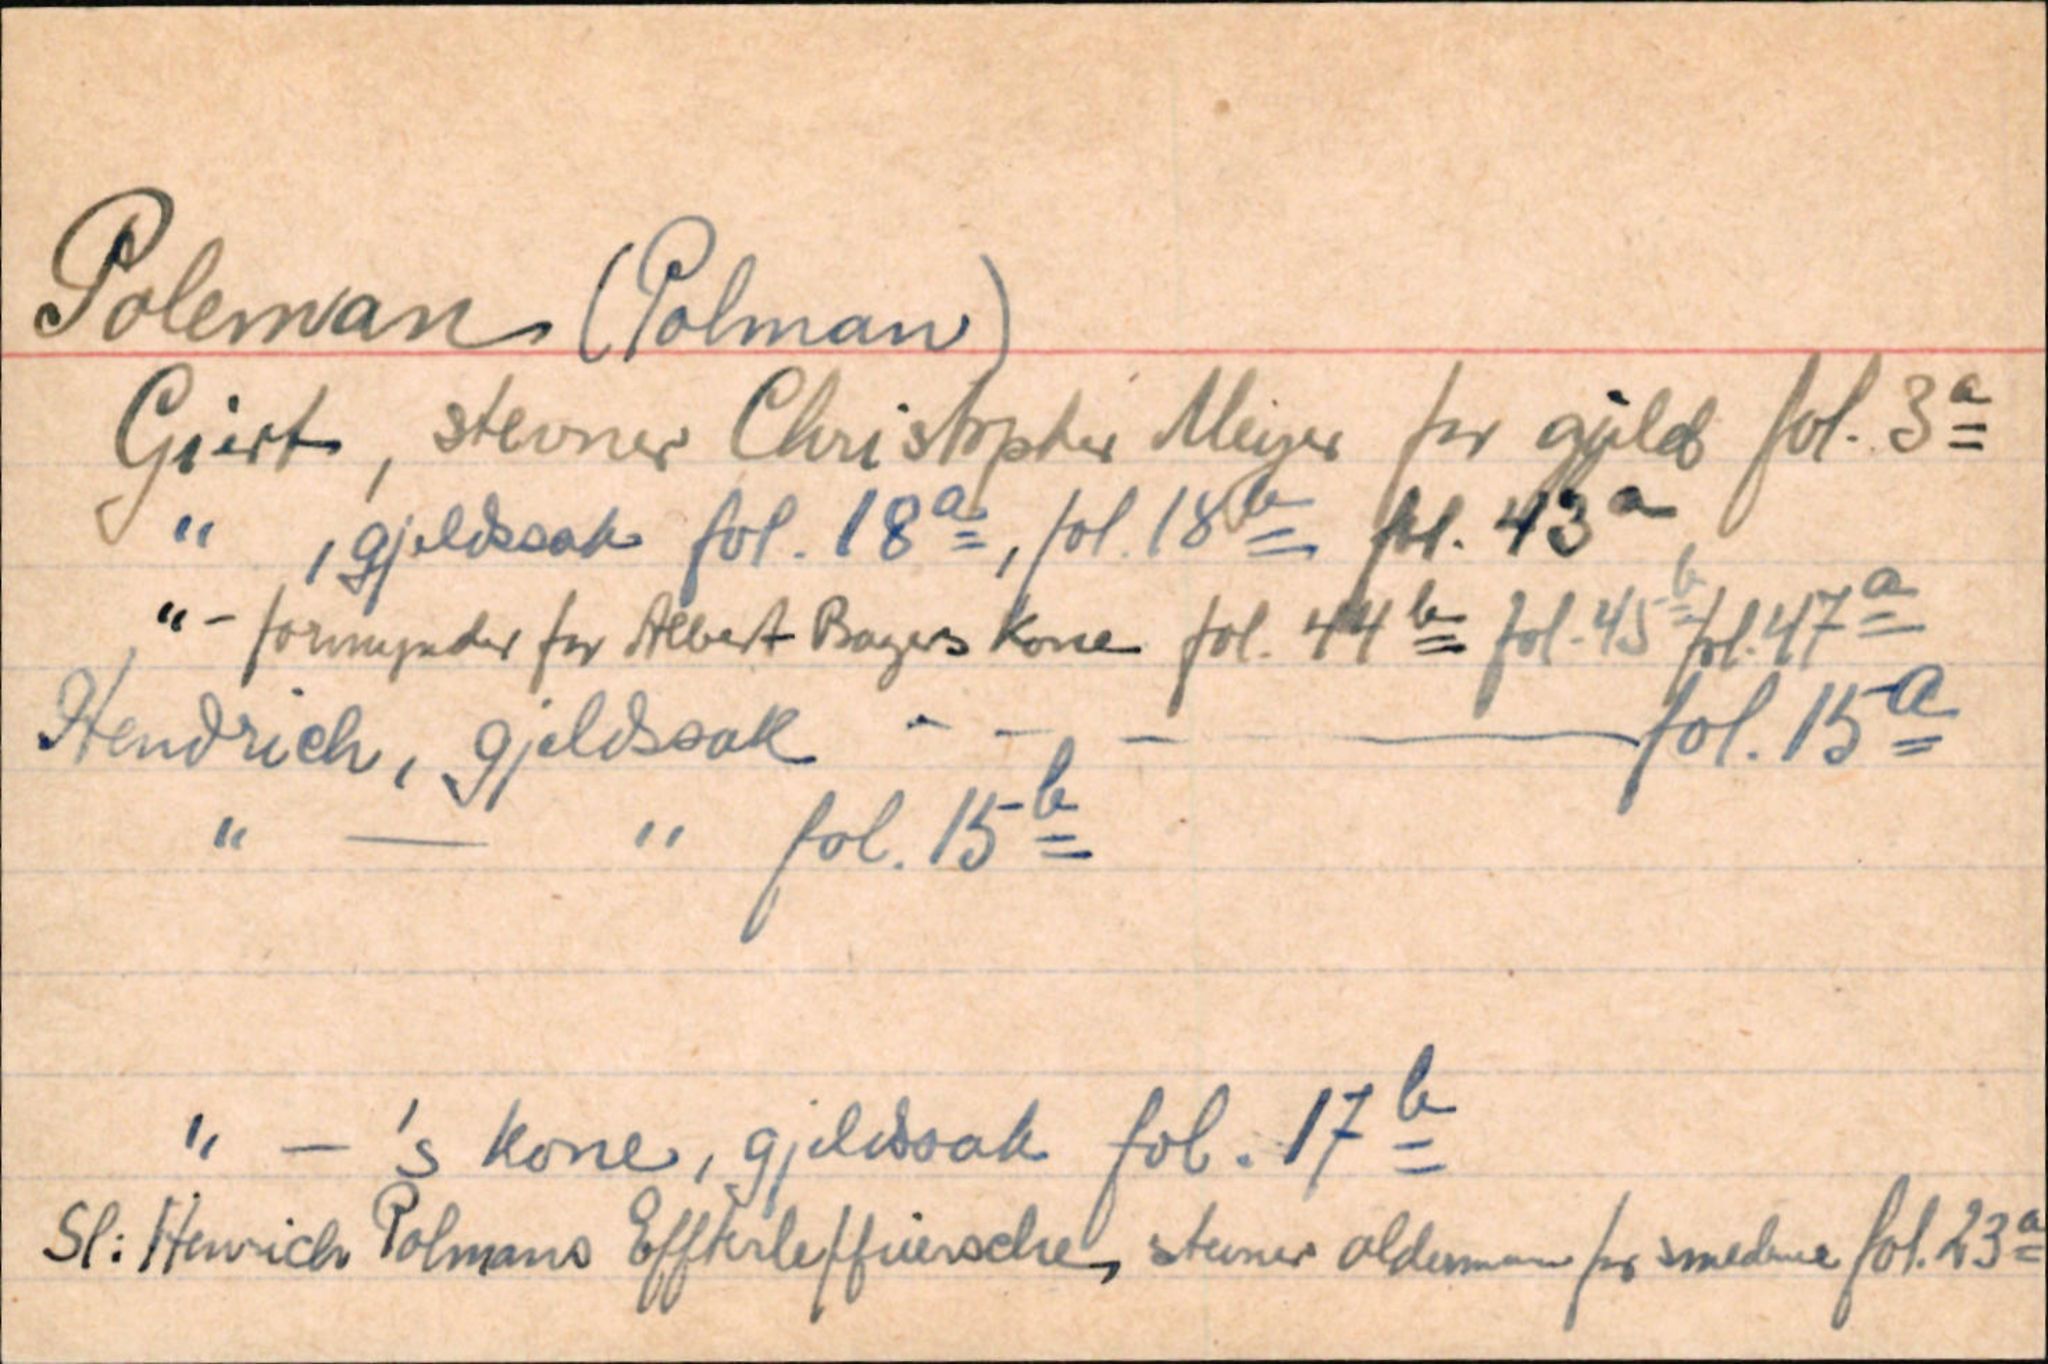 Poleman (Polman)
Giert, stevner Christopher Meyer for gjeld fol. 3a
" , gjeldssak fol. 18a, fol. 18b fol. 43a
" – formynder for Albert Bagers kone fol. 44b fol. 45b fol. 47a
Hendrich, gjeldssak - - - — fol. 15a
" — " fol. 15b
" – 's kone, gjeldssak fol. 17b
Sl: Henrich Polmans Effterleffuersche, stevner olderman for smedene fol. 23a